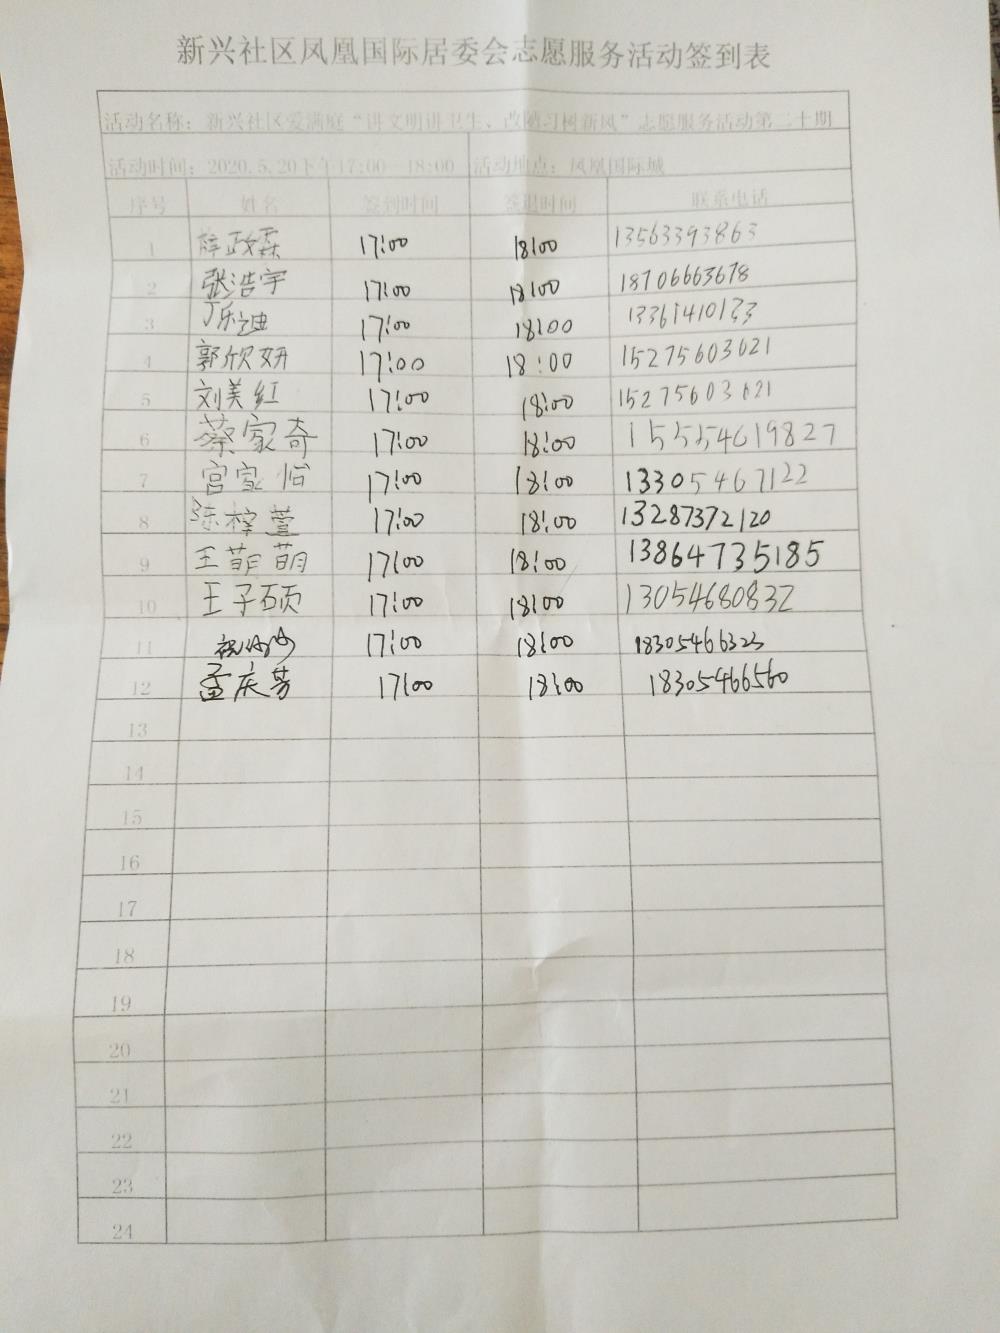 新兴社区凤凰国际居委会志愿服务活动签到表
活动名称：新兴社区爱满庭“讲文明讲卫生、改陋习树新风”志愿服务活动第二十期
活动时间：2020.5.20下午17:00—18:00 活动地点：凤凰国际城
序号 姓名 签到时间 签退时间 联系电话
1 薛政霖 17:00 18:00 13563393863
2 张浩宇 17:00 18:00 18706663678
3 丁乐迪 17:00 18:00
4 郭欣妍 17:00 18:00 15275603621
5 刘美红 17:00 18:00 15275603621
6 蔡家奇 17:00 18:00 15554619827
7 宫家怡 17:00 18:00 13305467122
8 陈梓萱 17:00 18:00 13287372120
9 王萌萌 17:00 18:00 13864735185
10 王子硕 17:00 18:00 13054680832
11 17:00 18:00 18305466323
12 孟庆芳 17:00 18:00 18305466560
13
14
15
16
17
18
19
20
21
22
23
24